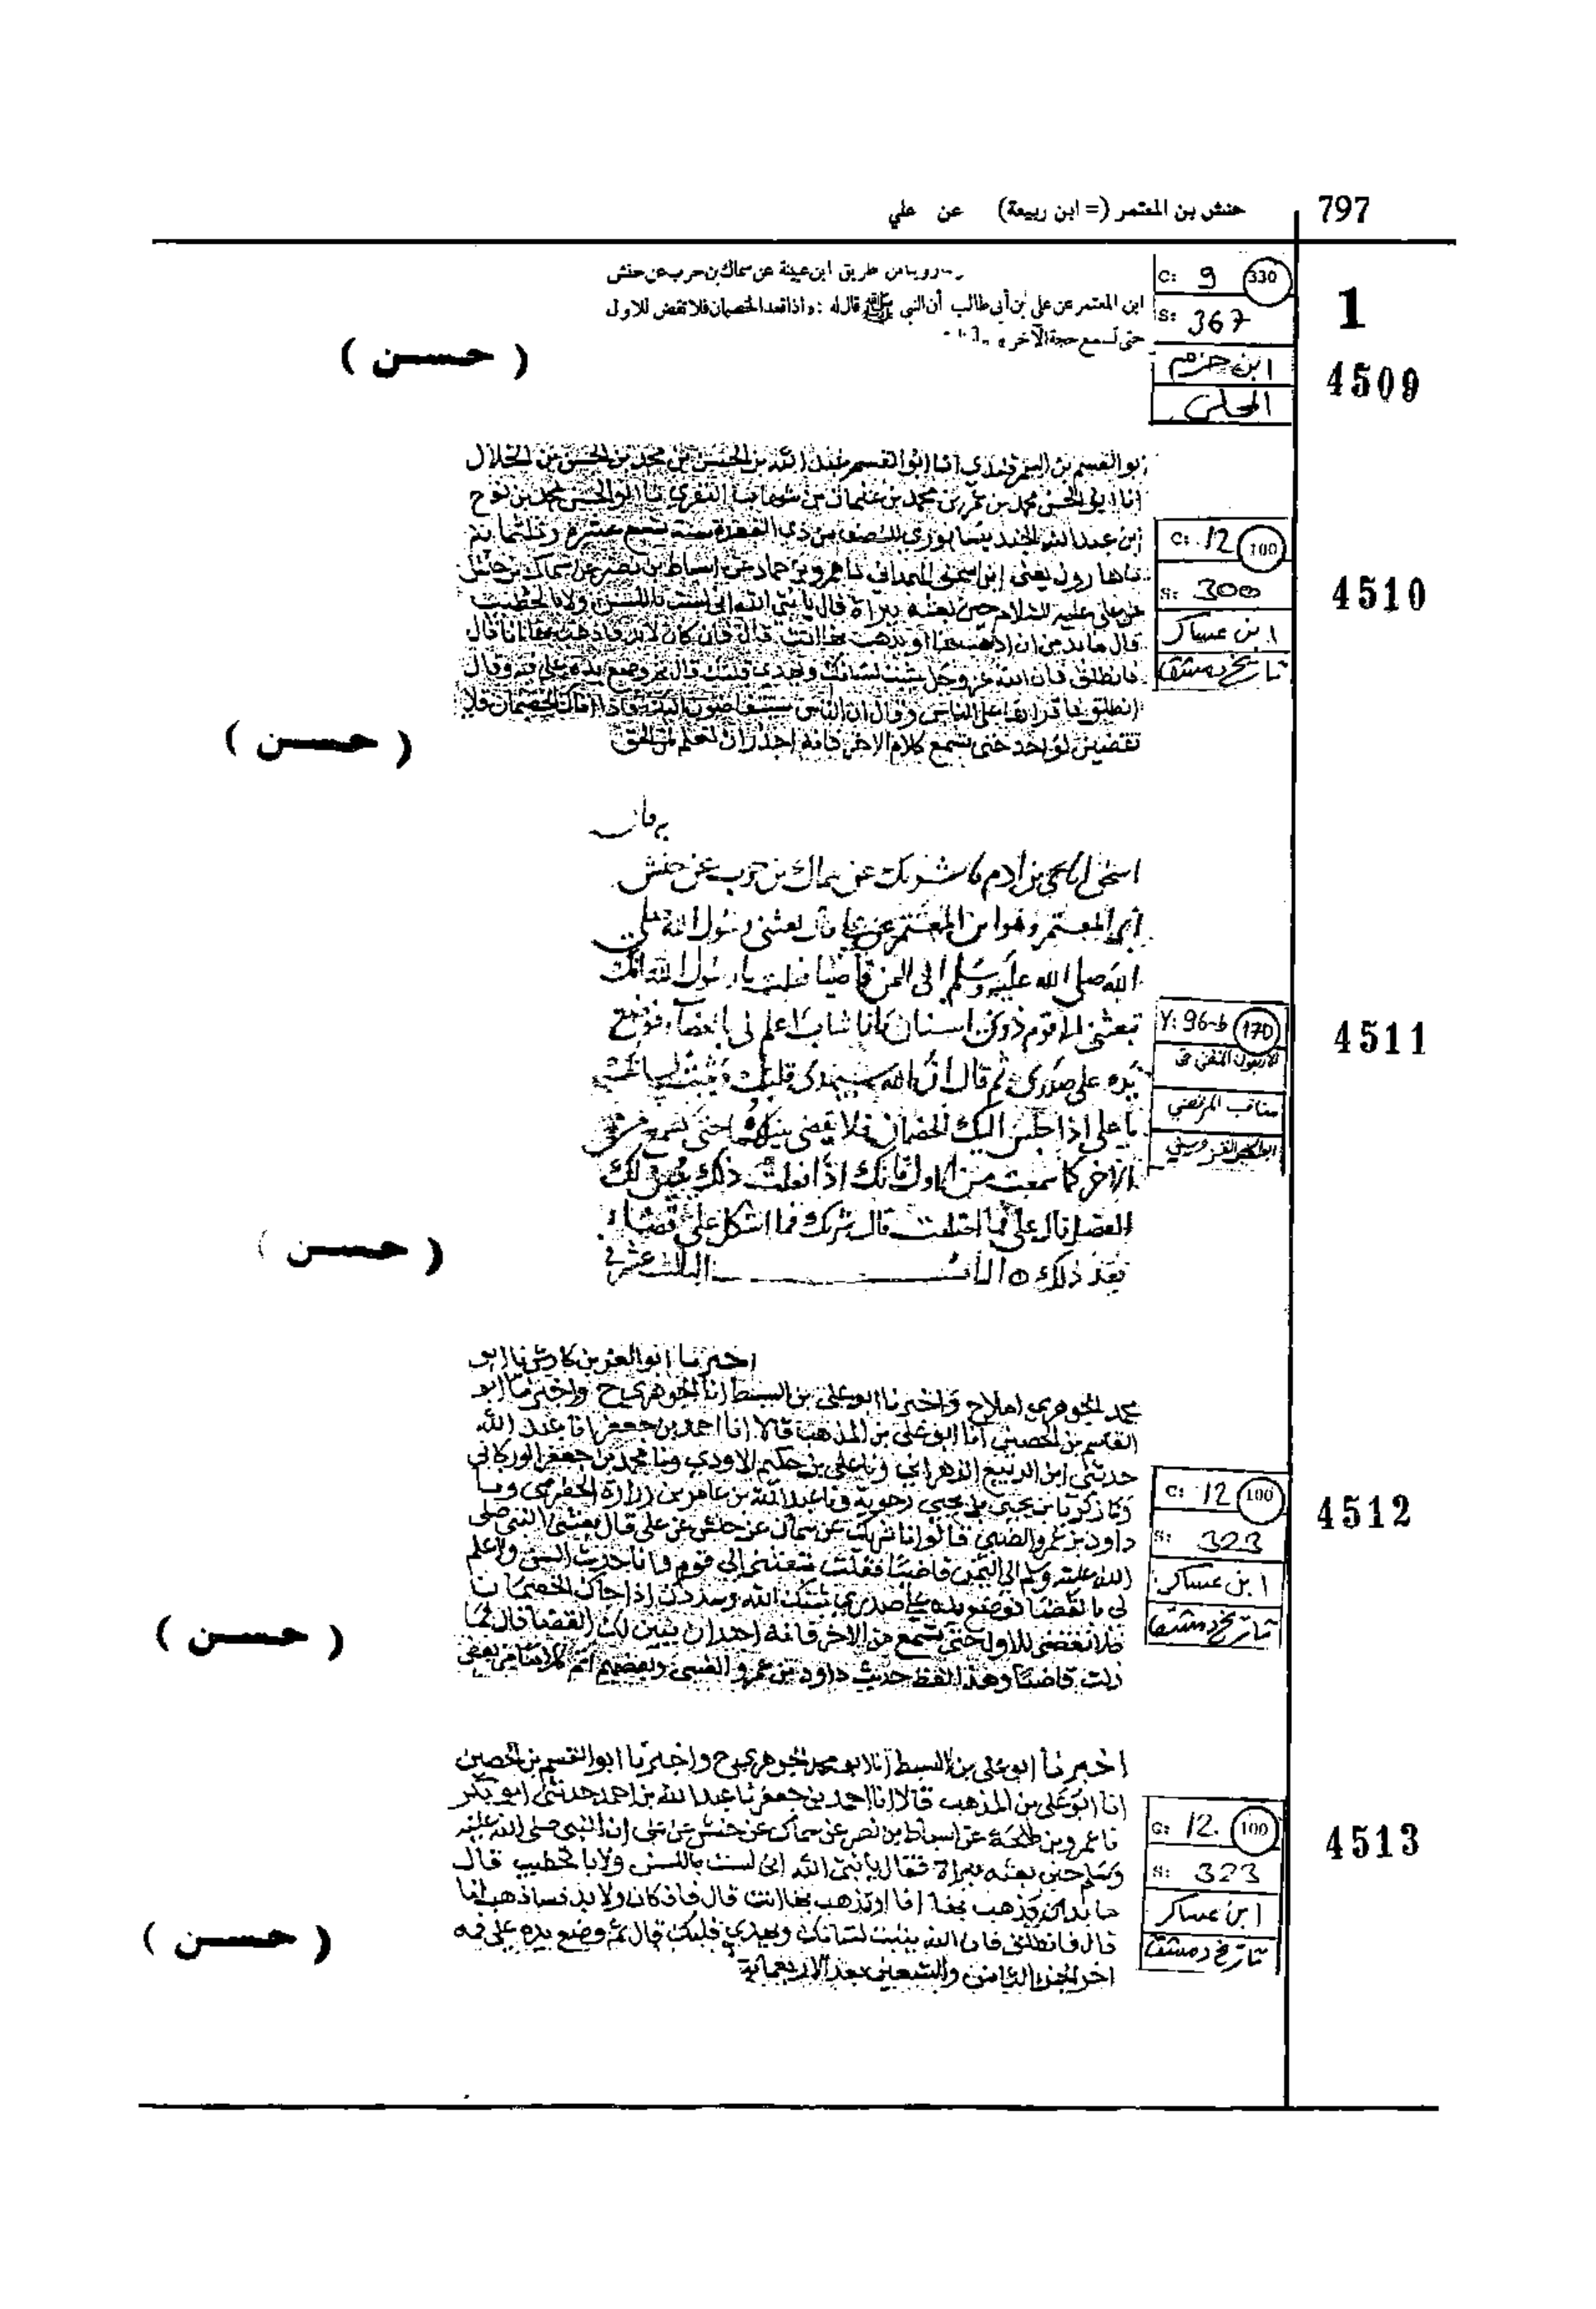 797 حنش بن المعتمر (= ابن ربيعة) عن علي
1
4509
C: 9 330
S: 367
ابن حزم
المحلى
روينا من طريق ابن عيينة عن سماك بن حرب عن حنش
ابن المعتمر عن علي بن أبي طالب أن النبي ﷺ قال له : « اذا قعد الخصمان فلا تقض للاول
حتى تسمع حجة الآخر »
( حسن )
4510
C: 12 100
S: 300
ابن عساكر
تاريخ دمشق
ابو القسم بن السمرقندي انا ابو القسم عبد الله بن الحسن بن محمد بن الحسن بن الخلال
انا محمد بن نوح
ابن عبد الله الجنديسابوري
نا هارون يعني ابن اسحق الهمداني نا عمرو بن حماد عن اسباط بن نصر عن سماك بن حنش
عن علي عليه السلام حين بعثه ببراة قال يا نبي الله اني لست باللسن ولا بالخطيب
قال ما بد من ان اذهب بها او تذهب بها انت قال فان كان لا بد فاذهب بها انا قال
فانطلق فان الله عز وجل يثبت لسانك ويهدي قلبك قال ثم وضع يده على فمه وقال
انطلق فاقراها على الناس وقال ان الناس سيتقاضون اليك فاذا اتاك الخصمان فلا
تقضين لواحد حتى تسمع كلام الاخر فانه اجدر ان تعلم لمن الحق
( حسن )
4511
Y: 96-b 170
الاربعون المنتقى من
مناقب المرتضى
اسحق انا يحيى بن ادم نا شريك عن سماك بن حرب عن حنش
ابي المعتمر وهو ابن المعتمر عن علي قال بعثني رسول الله صلى
الله صلى الله عليه وسلم الى اليمن قاضيا فقلت يا رسول الله انك
تبعثني الى قوم ذوي اسنان وانا شاب لا علم لي بالقضاء فوضع
يده على صدري ثم قال ان الله سيهدي قلبك ويثبت لسانك
يا علي اذا جلس اليك الخصمان فلا تقض بينهما حتى تسمع من
الاخر كما سمعت من الاول فانك اذا فعلت ذلك تبين لك
القضا قال علي فما اختلفت قال شريك فما اشكل علي قضاء
بعد ذلك الثالث عشر
( حسن )
4512
C: 12 100
S: 323
ابن عساكر
تاريخ دمشق
اخبرنا ابو العز بن كادش نا ابو
محمد الجوهري املاح واخبرنا ابو علي بن السبط انا الجوهري ح واخبرنا ابو
القاسم بن الحصين انا ابو علي بن المذهب قالا انا احمد بن جعفر نا عبد الله
حدثني ابو الربيع الزهراني ونا علي بن حكيم الاودي ونا محمد بن جعفر الوركاني
ونا زكريا بن يحيى بن يحيى رحمويه ونا عبد الله بن عامر بن زرارة الحضرمي ونا
داود بن عمرو الضبي قالوا انا شريك عن سماك عن حنش عن علي قال بعثني النبي صلى
الله عليه وسلم الى اليمن قاضيا فقلت تبعثني الى قوم وانا حدث السن ولا علم
لي بالقضا فوضع يده على صدري ثبتك الله وسددك اذا جاك الخصمان
فلا تقض للاول حتى تسمع من الاخر فانه اجدر ان يتبين لك القضا قال فما
زلت قاضيا وهذا لفظ حديث داود بن عمرو الضبي وبعضهم اتم كلاما من بعض
( حسن )
4513
C: 12. 100
S: 323
ابن عساكر
تاريخ دمشق
اخبرنا ابو علي بن السبط انا ابو محمد الجوهري ح واخبرنا ابو القسم بن الحصين
انا ابو علي بن المذهب قالا انا احمد بن جعفر نا عبد الله بن احمد حدثني ابو بكر
نا عمرو بن طلحة عن اسباط بن نصر عن سماك عن حنش عن علي ان النبي صلى الله عليه
وسلم حين بعثه ببراة فقال يا نبي الله اني لست باللسن ولا بالخطيب قال
ما بد ان تذهب بها انا او تذهب بها انت قال فان كان ولا بد فساذهب انا
قال فانطلق فان الله يثبت لسانك ويهدي قلبك قال ثم وضع يده على فمه
اخر الجزء الثامن والتسعين بعد الاربعماية
( حسن )